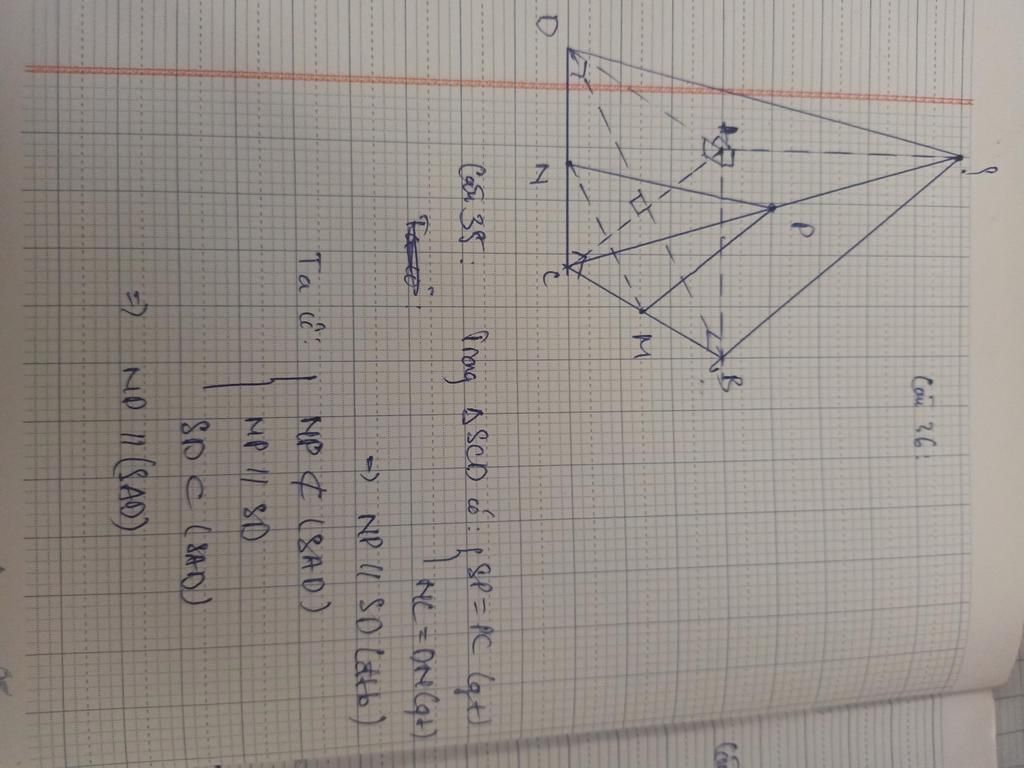 Câu 36:
S
P
A
B
M
D
N
C
Câu 35: Trong ΔSCD có: { SP = PC (gt)
NC = DN (gt)
=) NP // SD (đtb)
Ta có: { NP ⊄ (SAD)
NP // SD
SD ⊂ (SAD)
=) NP // (SAD)